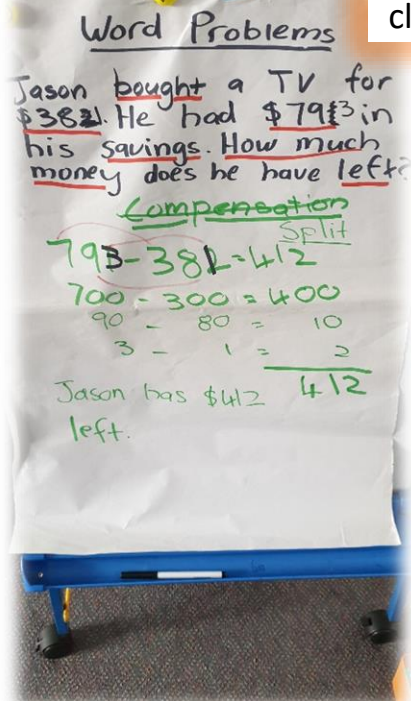 cl
Word Problems
Jason bought a TV for
$381. He had $793 in
his savings. How much
money does he have left?
Compensation
Split
793-381=412
700 - 300 = 400
90 - 80 = 10
3 - 1 = 2
412
Jason has $412
left.